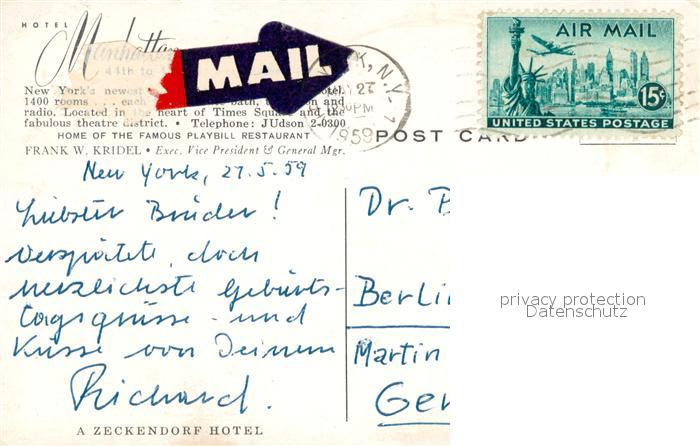 HOTEL
Manhattan
44th to
New York's newest
hotel.
1400 rooms . . . each bath, and
radio. Located in the heart of Times Square and the
fabulous theatre district. • Telephone: JUdson 2-0300
HOME OF THE FAMOUS PLAYBILL RESTAURANT
FRANK W. KRIDEL • Exec. Vice President & General Mgr.
MAIL
K, N.Y.
27
PM
1959
POST CARD
AIR MAIL
15¢
UNITED STATES POSTAGE
New York, 27.5.59
Liebster Bruder!
Verspätete, doch
herzlichste Geburts-
tagsgrüsse und
Küsse von Deinem
Richard.
Dr. B
Berlin
Martin
Ger
privacy protection
Datenschutz
A ZECKENDORF HOTEL